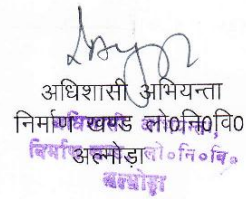 अधिशासी अभियन्ता
निर्माण खण्ड लो०नि०वि०
अल्मोड़ा
अधिशासी अभियन्ता,
निर्माण खण्ड लो०नि०वि०
अल्मोड़ा